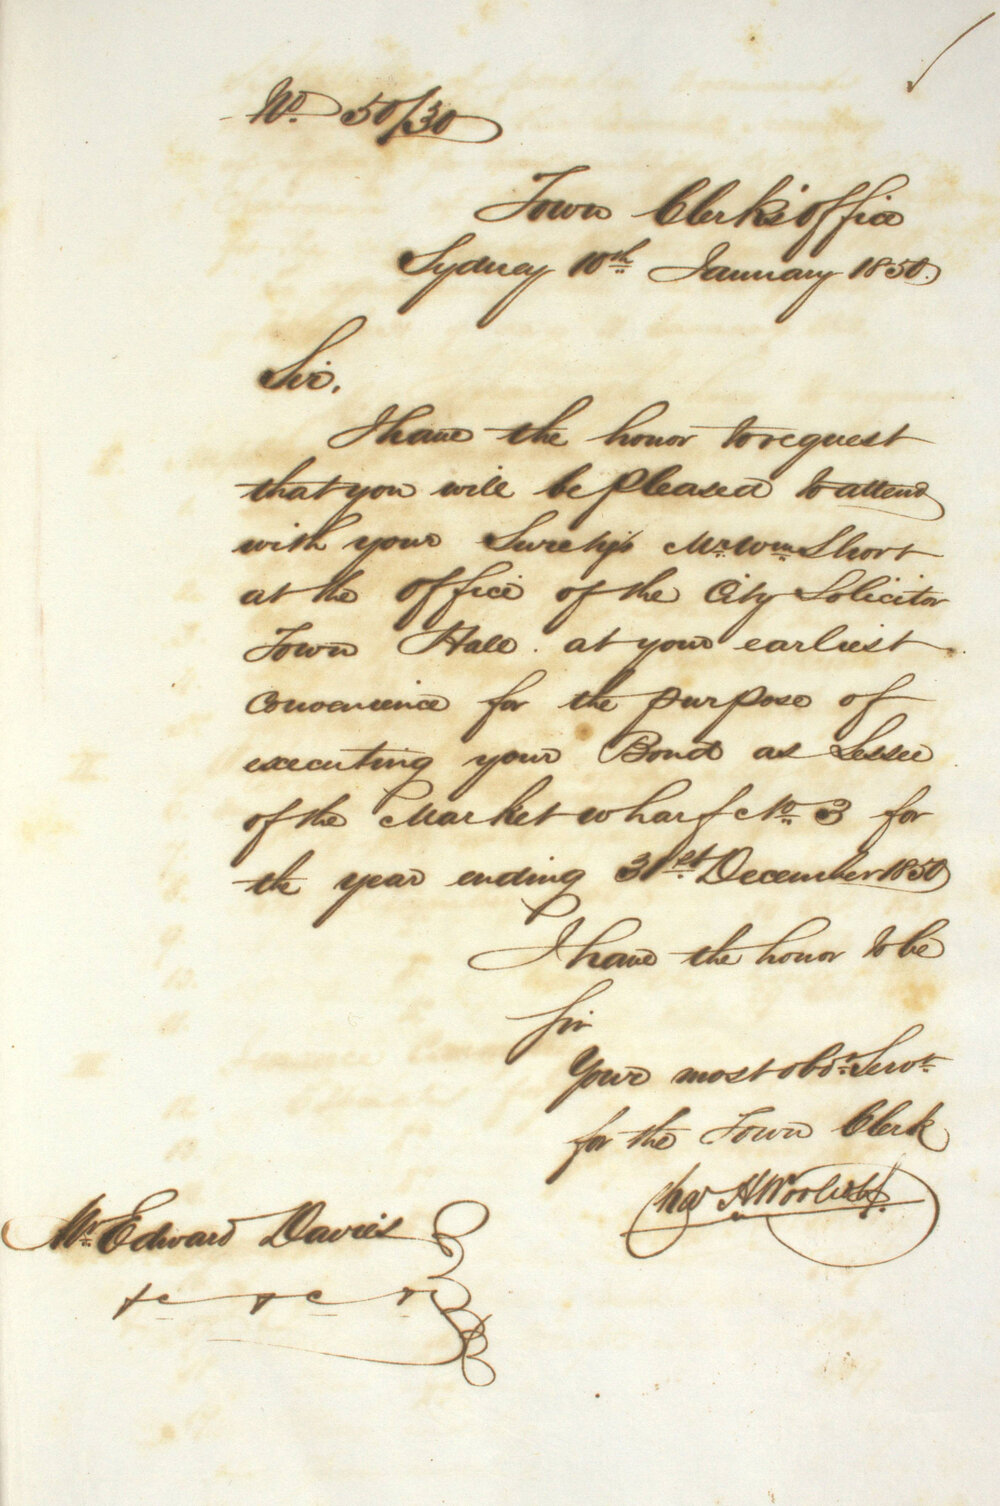 No. 50/30
Town Clerk's Office
Sydney 10th January 1850.
Sir,
I have the honor to request
that you will be pleased to attend
with your Surety's Mr. Wm. Short
at the Office of the City Solicitor
Town Hall. at your earliest
convenience for the purpose of
executing your Bond as Lessee
of the Market Wharf No. 3 for
the year ending 31st December 1850
I have the honor to be
Sir
Your most obdt. Servt.
for the Town Clerk
Chas H Woolcott
Mr. Edward Davies
&c &c &c